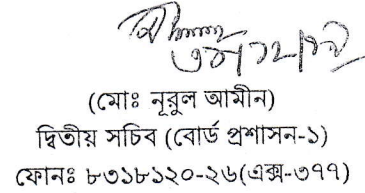 (মোঃ নূরুল আমীন)
দ্বিতীয় সচিব (বোর্ড প্রশাসন-১)
ফোনঃ ৮৩১৮১২০-২৬(এক্স-৩৭৭)